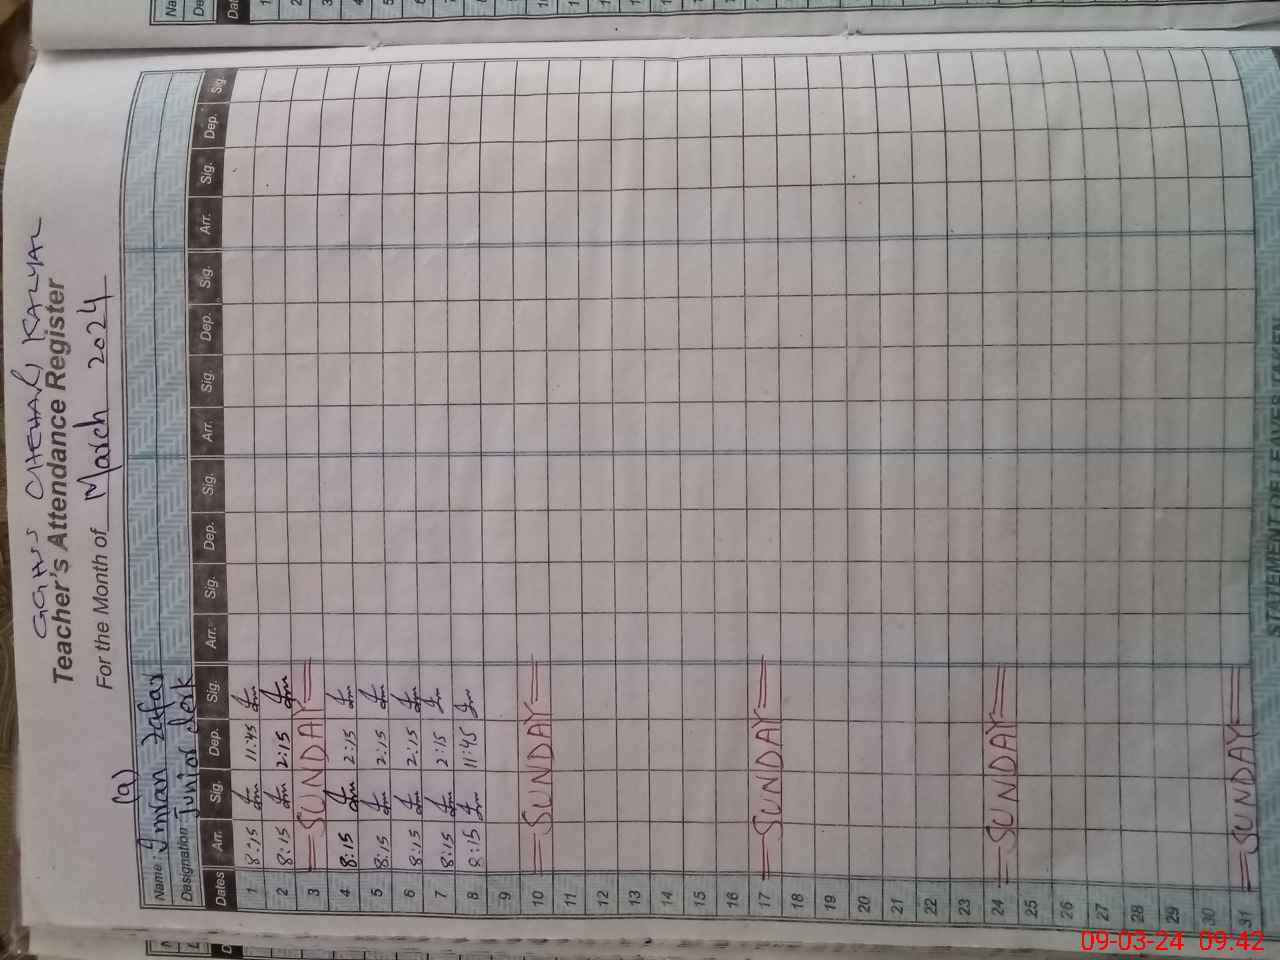 GGHSS CHEHARI KALYAL
Teacher's Attendance Register
For the Month of March 2024
(9)
Name: Imran Zafar
Designation: Junior Clerk
Dates Arr. Sig. Dep. Sig. Arr. Sig. Dep. Sig. Arr. Sig. Dep. Sig. Arr. Sig. Dep. Sig.
1 8:15 11:45
2 8:15 2:15
3 SUNDAY
4 8:15 2:15
5 8:15 2:15
6 8:15 2:15
7 8:15 2:15
8 8:15 11:45
9
10 SUNDAY
11
12
13
14
15
16
17 SUNDAY
18
19
20
21
22
23
24 SUNDAY
25
26
27
28
29
30
31 SUNDAY
STATEMENT OF LEAVES TAKEN
09-03-24 09:42